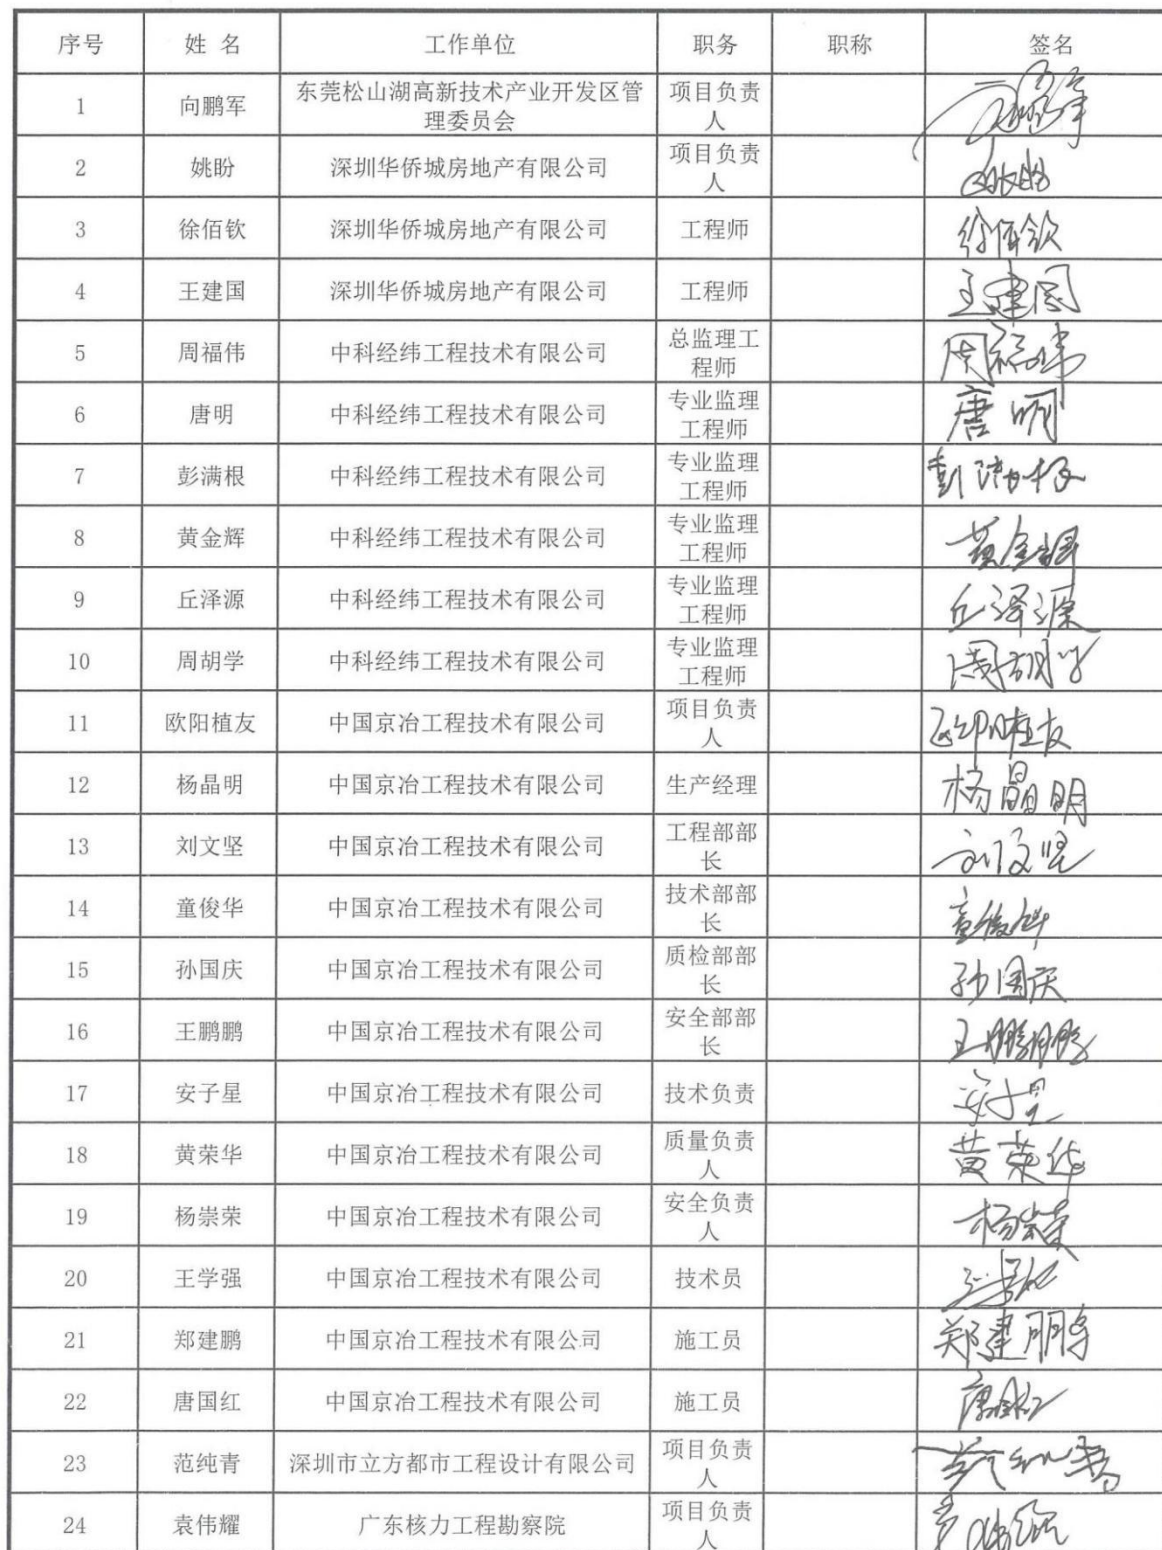 序号 姓 名 工作单位 职务 职称 签名
1 向鹏军 东莞松山湖高新技术产业开发区管 项目负责
理委员会 人
2 姚盼 深圳华侨城房地产有限公司 项目负责
人 姚盼
3 徐佰钦 深圳华侨城房地产有限公司 工程师 徐佰钦
4 王建国 深圳华侨城房地产有限公司 工程师 王建国
5 周福伟 中科经纬工程技术有限公司 总监理工
程师 周福伟
6 唐明 中科经纬工程技术有限公司 专业监理
工程师 唐明
7 彭满根 中科经纬工程技术有限公司 专业监理
工程师 彭满根
8 黄金辉 中科经纬工程技术有限公司 专业监理
工程师 黄金辉
9 丘泽源 中科经纬工程技术有限公司 专业监理
工程师 丘泽源
10 周胡学 中科经纬工程技术有限公司 专业监理
工程师 周胡学
11 欧阳植友 中国京冶工程技术有限公司 项目负责
人 欧阳植友
12 杨晶明 中国京冶工程技术有限公司 生产经理 杨晶明
13 刘文坚 中国京冶工程技术有限公司 工程部部
长 刘文坚
14 童俊华 中国京冶工程技术有限公司 技术部部
长 童俊华
15 孙国庆 中国京冶工程技术有限公司 质检部部
长 孙国庆
16 王鹏鹏 中国京冶工程技术有限公司 安全部部
长 王鹏鹏
17 安子星 中国京冶工程技术有限公司 技术负责 安子星
18 黄荣华 中国京冶工程技术有限公司 质量负责
人 黄荣华
19 杨崇荣 中国京冶工程技术有限公司 安全负责
人 杨崇荣
20 王学强 中国京冶工程技术有限公司 技术员
21 郑建鹏 中国京冶工程技术有限公司 施工员 郑建鹏
22 唐国红 中国京冶工程技术有限公司 施工员 唐国红
23 范纯青 深圳市立方都市工程设计有限公司 项目负责
人 范纯青
24 袁伟耀 广东核力工程勘察院 项目负责
人